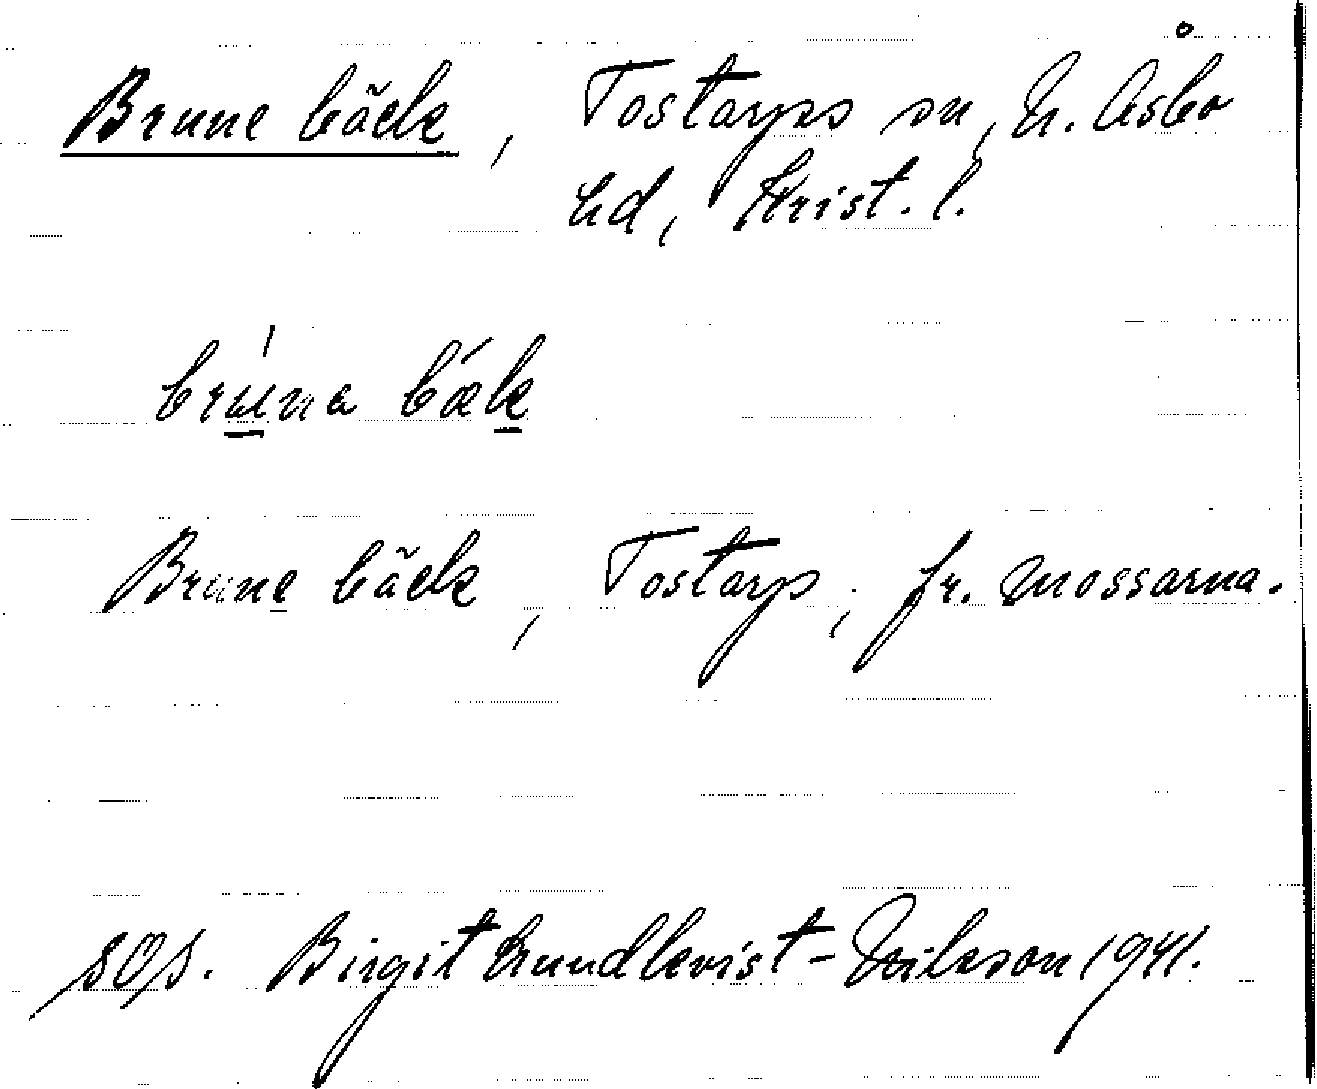 Brune bäck, Tostarps sn, N. Åsbo
hd, Krist. l.
bruna bæk
Brune bäck, Tostarp, fr. mossarna.
sOs. Birgit Lundkvist-Nilsson 1941.